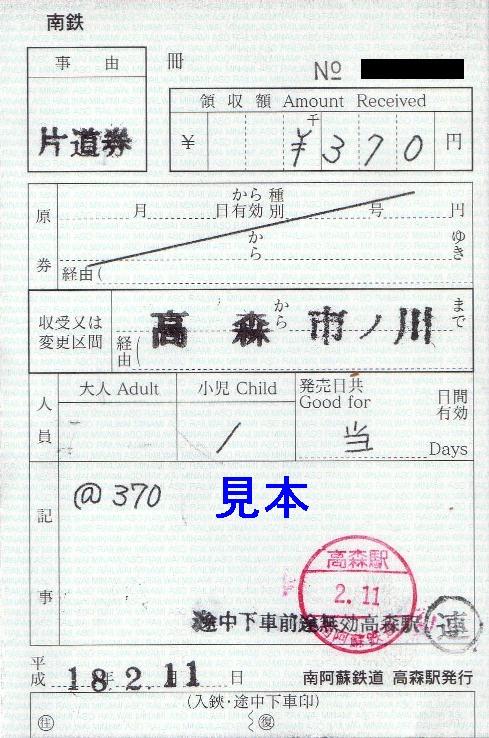 南鉄
事 由
冊
No
片道券
領収額 Amount Received
千
¥ ¥370 円
原券
月 日から有効 種別 号 円
から ゆき
経由(
収受又は変更区間
高森 から 市ノ川 まで
経由(
人員
大人 Adult
小児 Child
発売日共 Good for
日間有効
- / 当 Days
記事
@370
見本
高森駅
2.11
南阿蘇鉄道
途中下車前途無効高森駅 連
平成 18年 2. 11 日 南阿蘇鉄道 高森駅発行
(入鋏・途中下車印)
住 復